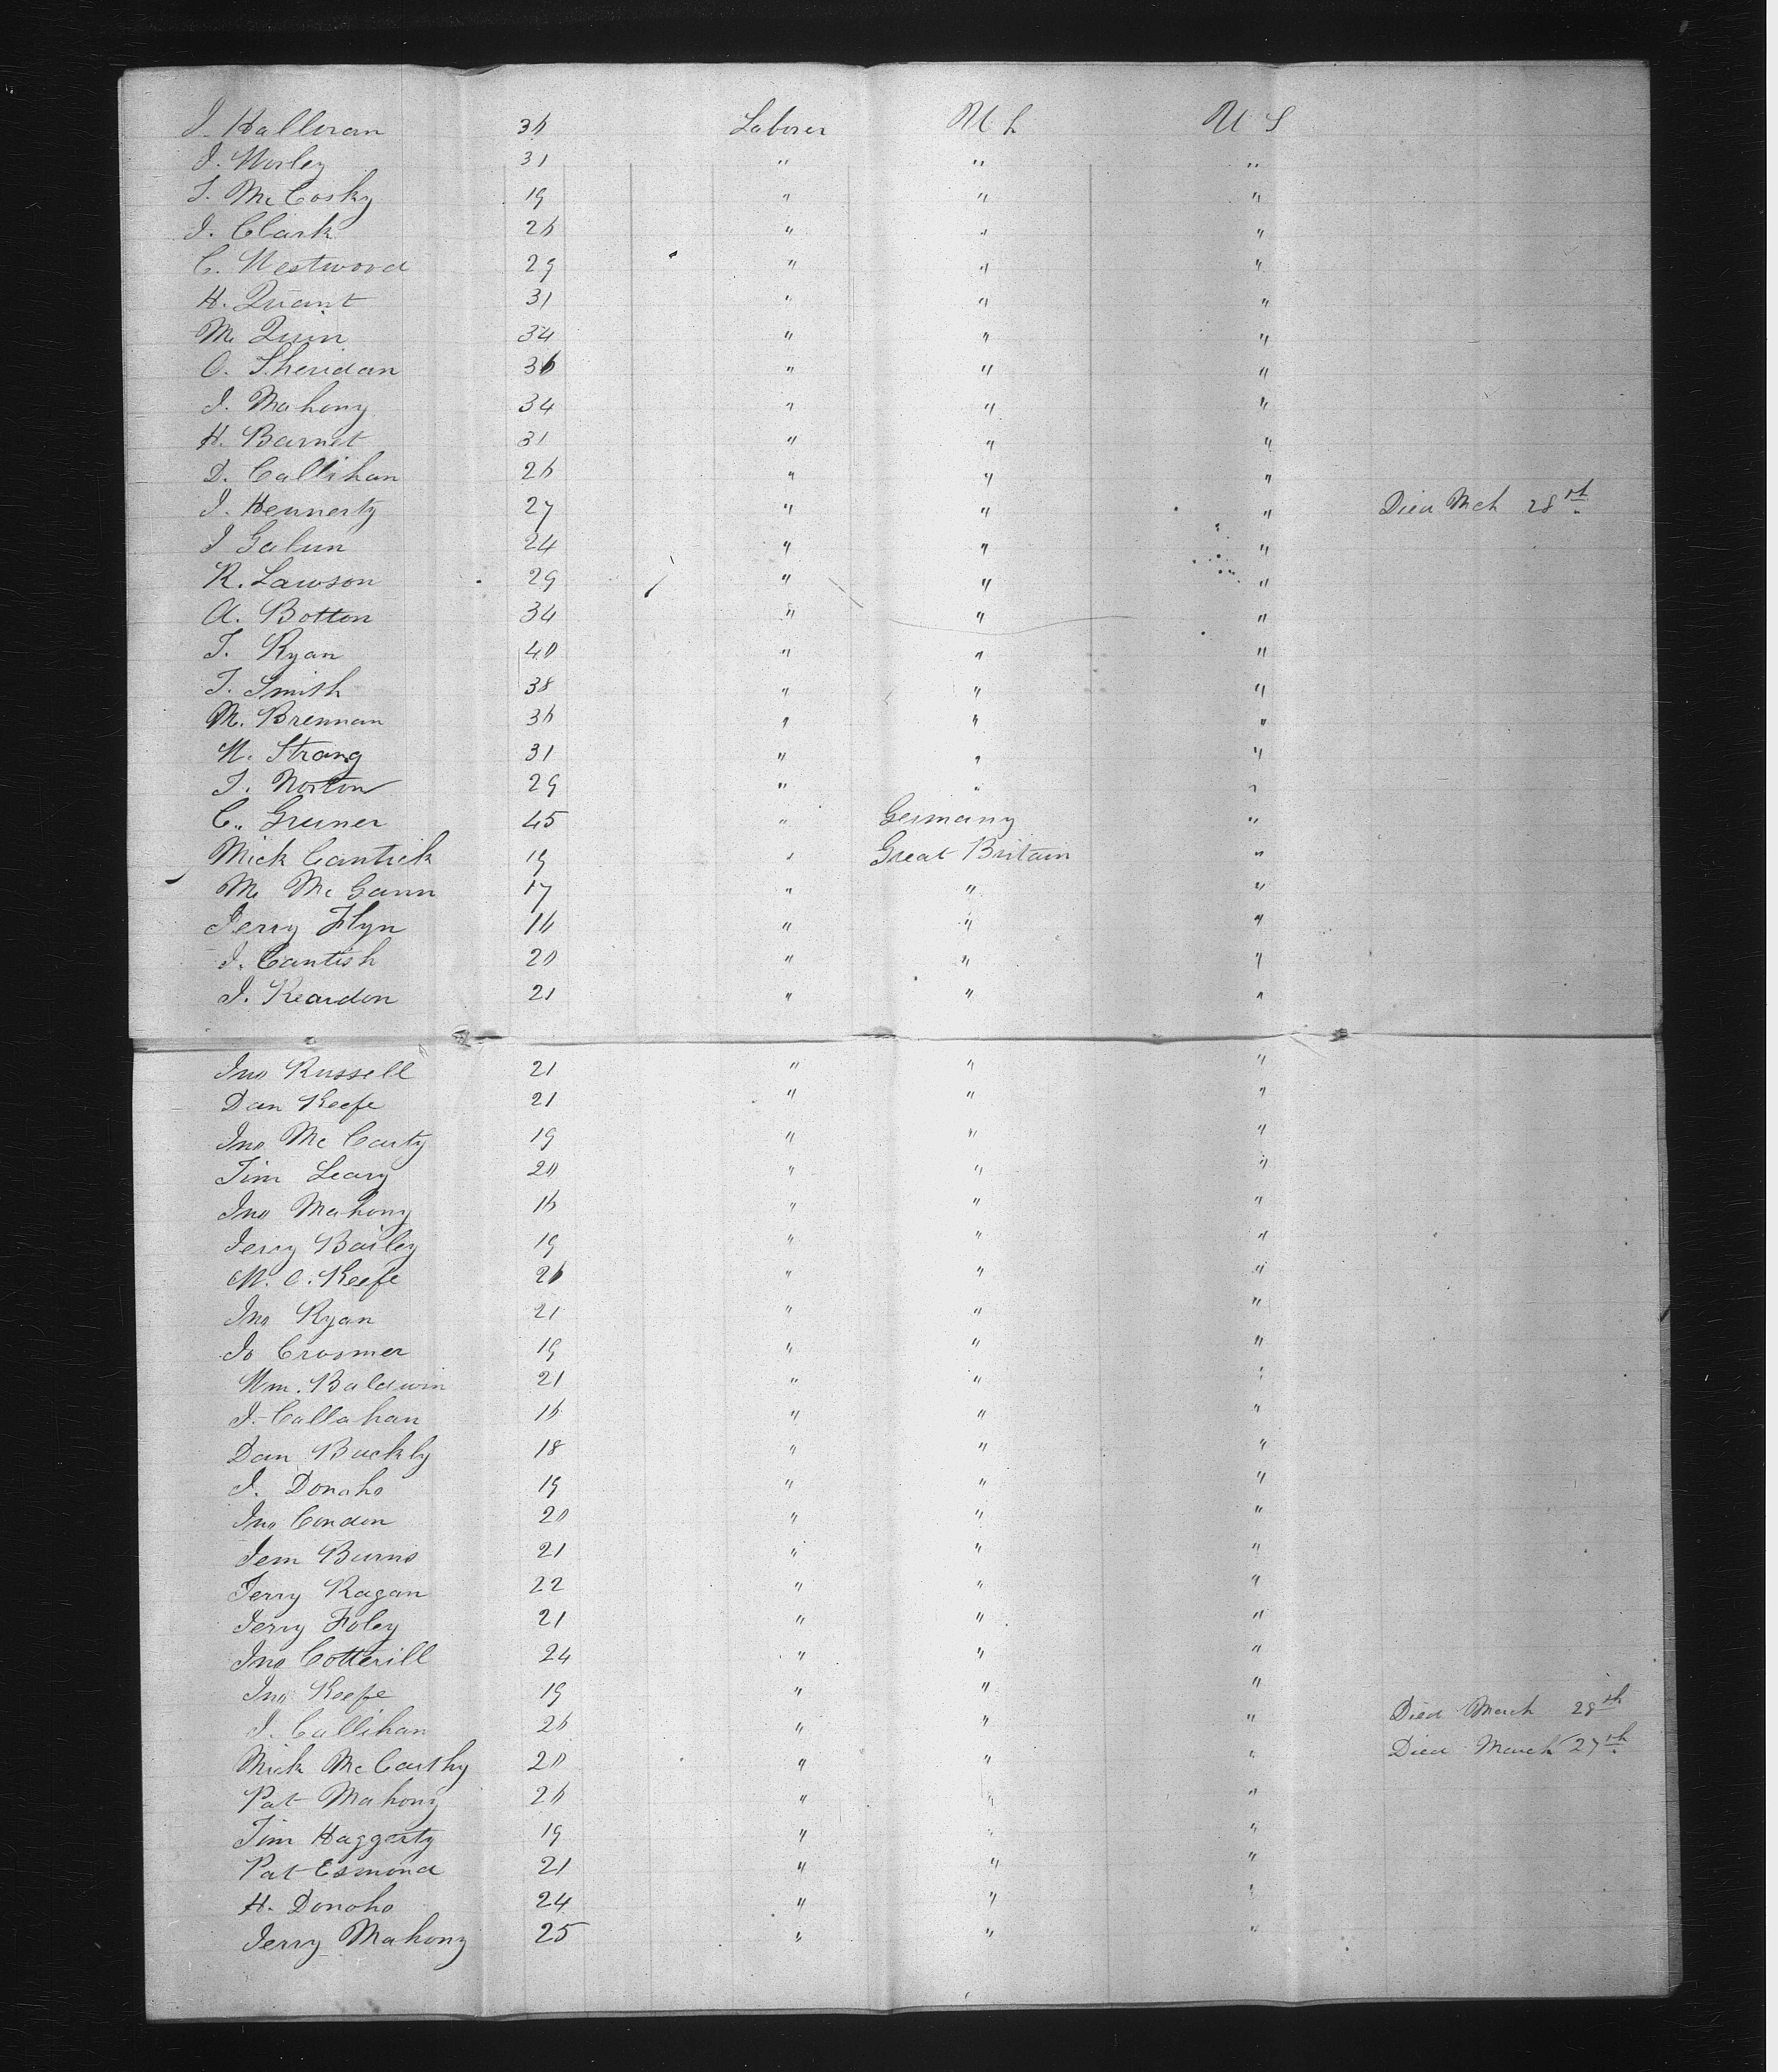 J. Halloran 36 Laborer U S U S
J. Worley 31 " " "
T. McCosky 19 " " "
J. Clark 26 " " "
C. Westwood 29 " " "
H. Quant 31 " " "
M. Quin 34 " " "
O. Sheridan 36 " " "
J. Mahony 34 " " "
H. Barnet 31 " " "
D. Callihan 26 " " "
J. Hennerty 27 " " " Died Mch 28th
J Galun 24 " " "
R. Lawson 29 " " "
A. Botton 34 " " "
T. Ryan 40 " " "
T. Smith 38 " " "
M. Brennan 36 " " "
W. Strang 31 " " "
T. Norton 29 " " "
C. Gruner 45 " Germany "
Mick Cantrick 19 " Great Britain "
M. McGann 17 " " "
Jerry Flyn 16 " " "
J. Cantish 20 " " "
J. Reardon 21 " " "
Jno Russell 21 " " "
Dan Keefe 21 " " "
Jno McCarty 19 " " "
Tim Leary 20 " " "
Jno Mahony 16 " " "
Jerry Bailey 19 " " "
M. O. Keefe 26 " " "
Jno Ryan 21 " " "
Jo Crosmer 19 " " "
Wm. Baldwin 21 " " "
J. Callahan 16 " " "
Dan Buckly 18 " " "
J. Donoho 19 " " "
Jno Condon 20 " " "
Jem Burns 21 " " "
Jerry Ragan 22 " " "
Jerry Foley 21 " " "
Jno Cotterill 24 " " "
Jno Keefe 19 " " "
J. Callihan 26 " " " Died March 28th
Mick McCarthy 20 " " " Died March 27th
Pat Mahony 26 " " "
Tim Haggerty 19 " " "
Pat Esmond 21 " " "
H. Donoho 24 " " "
Jerry Mahony 25 " " "